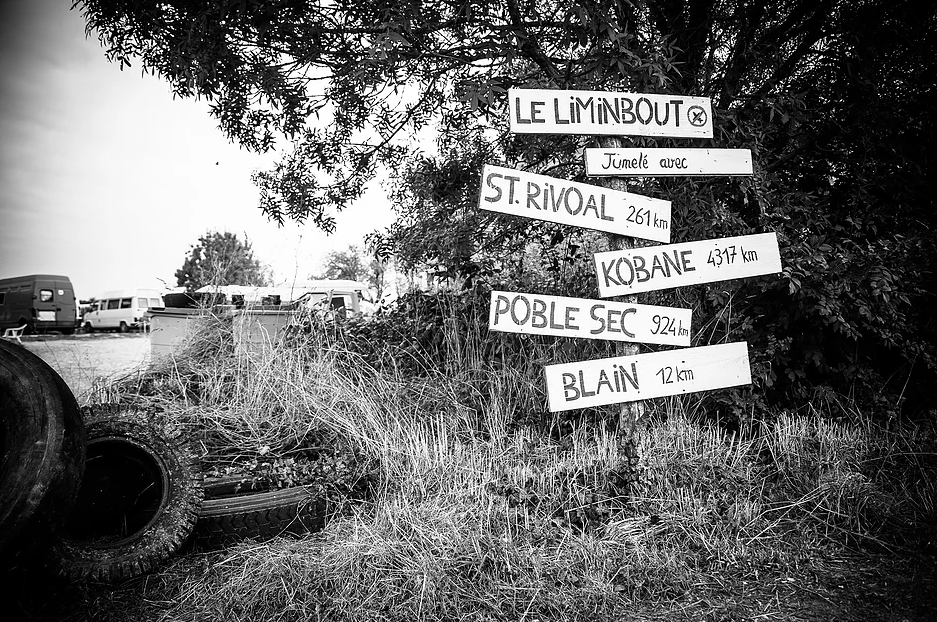 LE LiMiNBOUT
Jumelé avec
ST. RiVOAL 261 km
KOBANE 4317 km
POBLE SEC 924 km
BLAiN 12 km